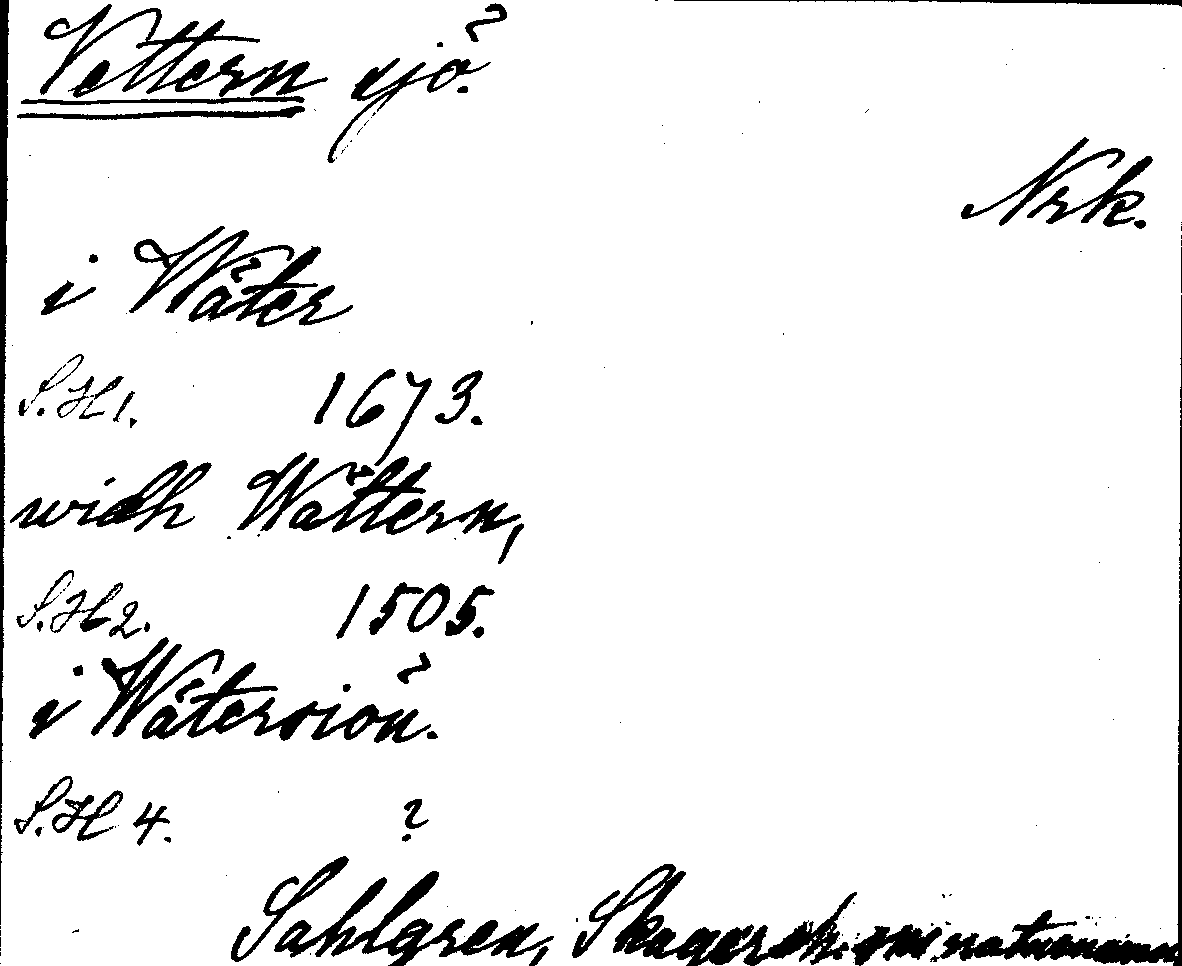 Vettern sjö.
Nrk.
i Wäter
S.H 1. 1673.
widh Wättern,
S.H 2. 1505.
i Wätersiön.
S.H 4. ?
Sahlgren, Skagersh. sns naturnamn